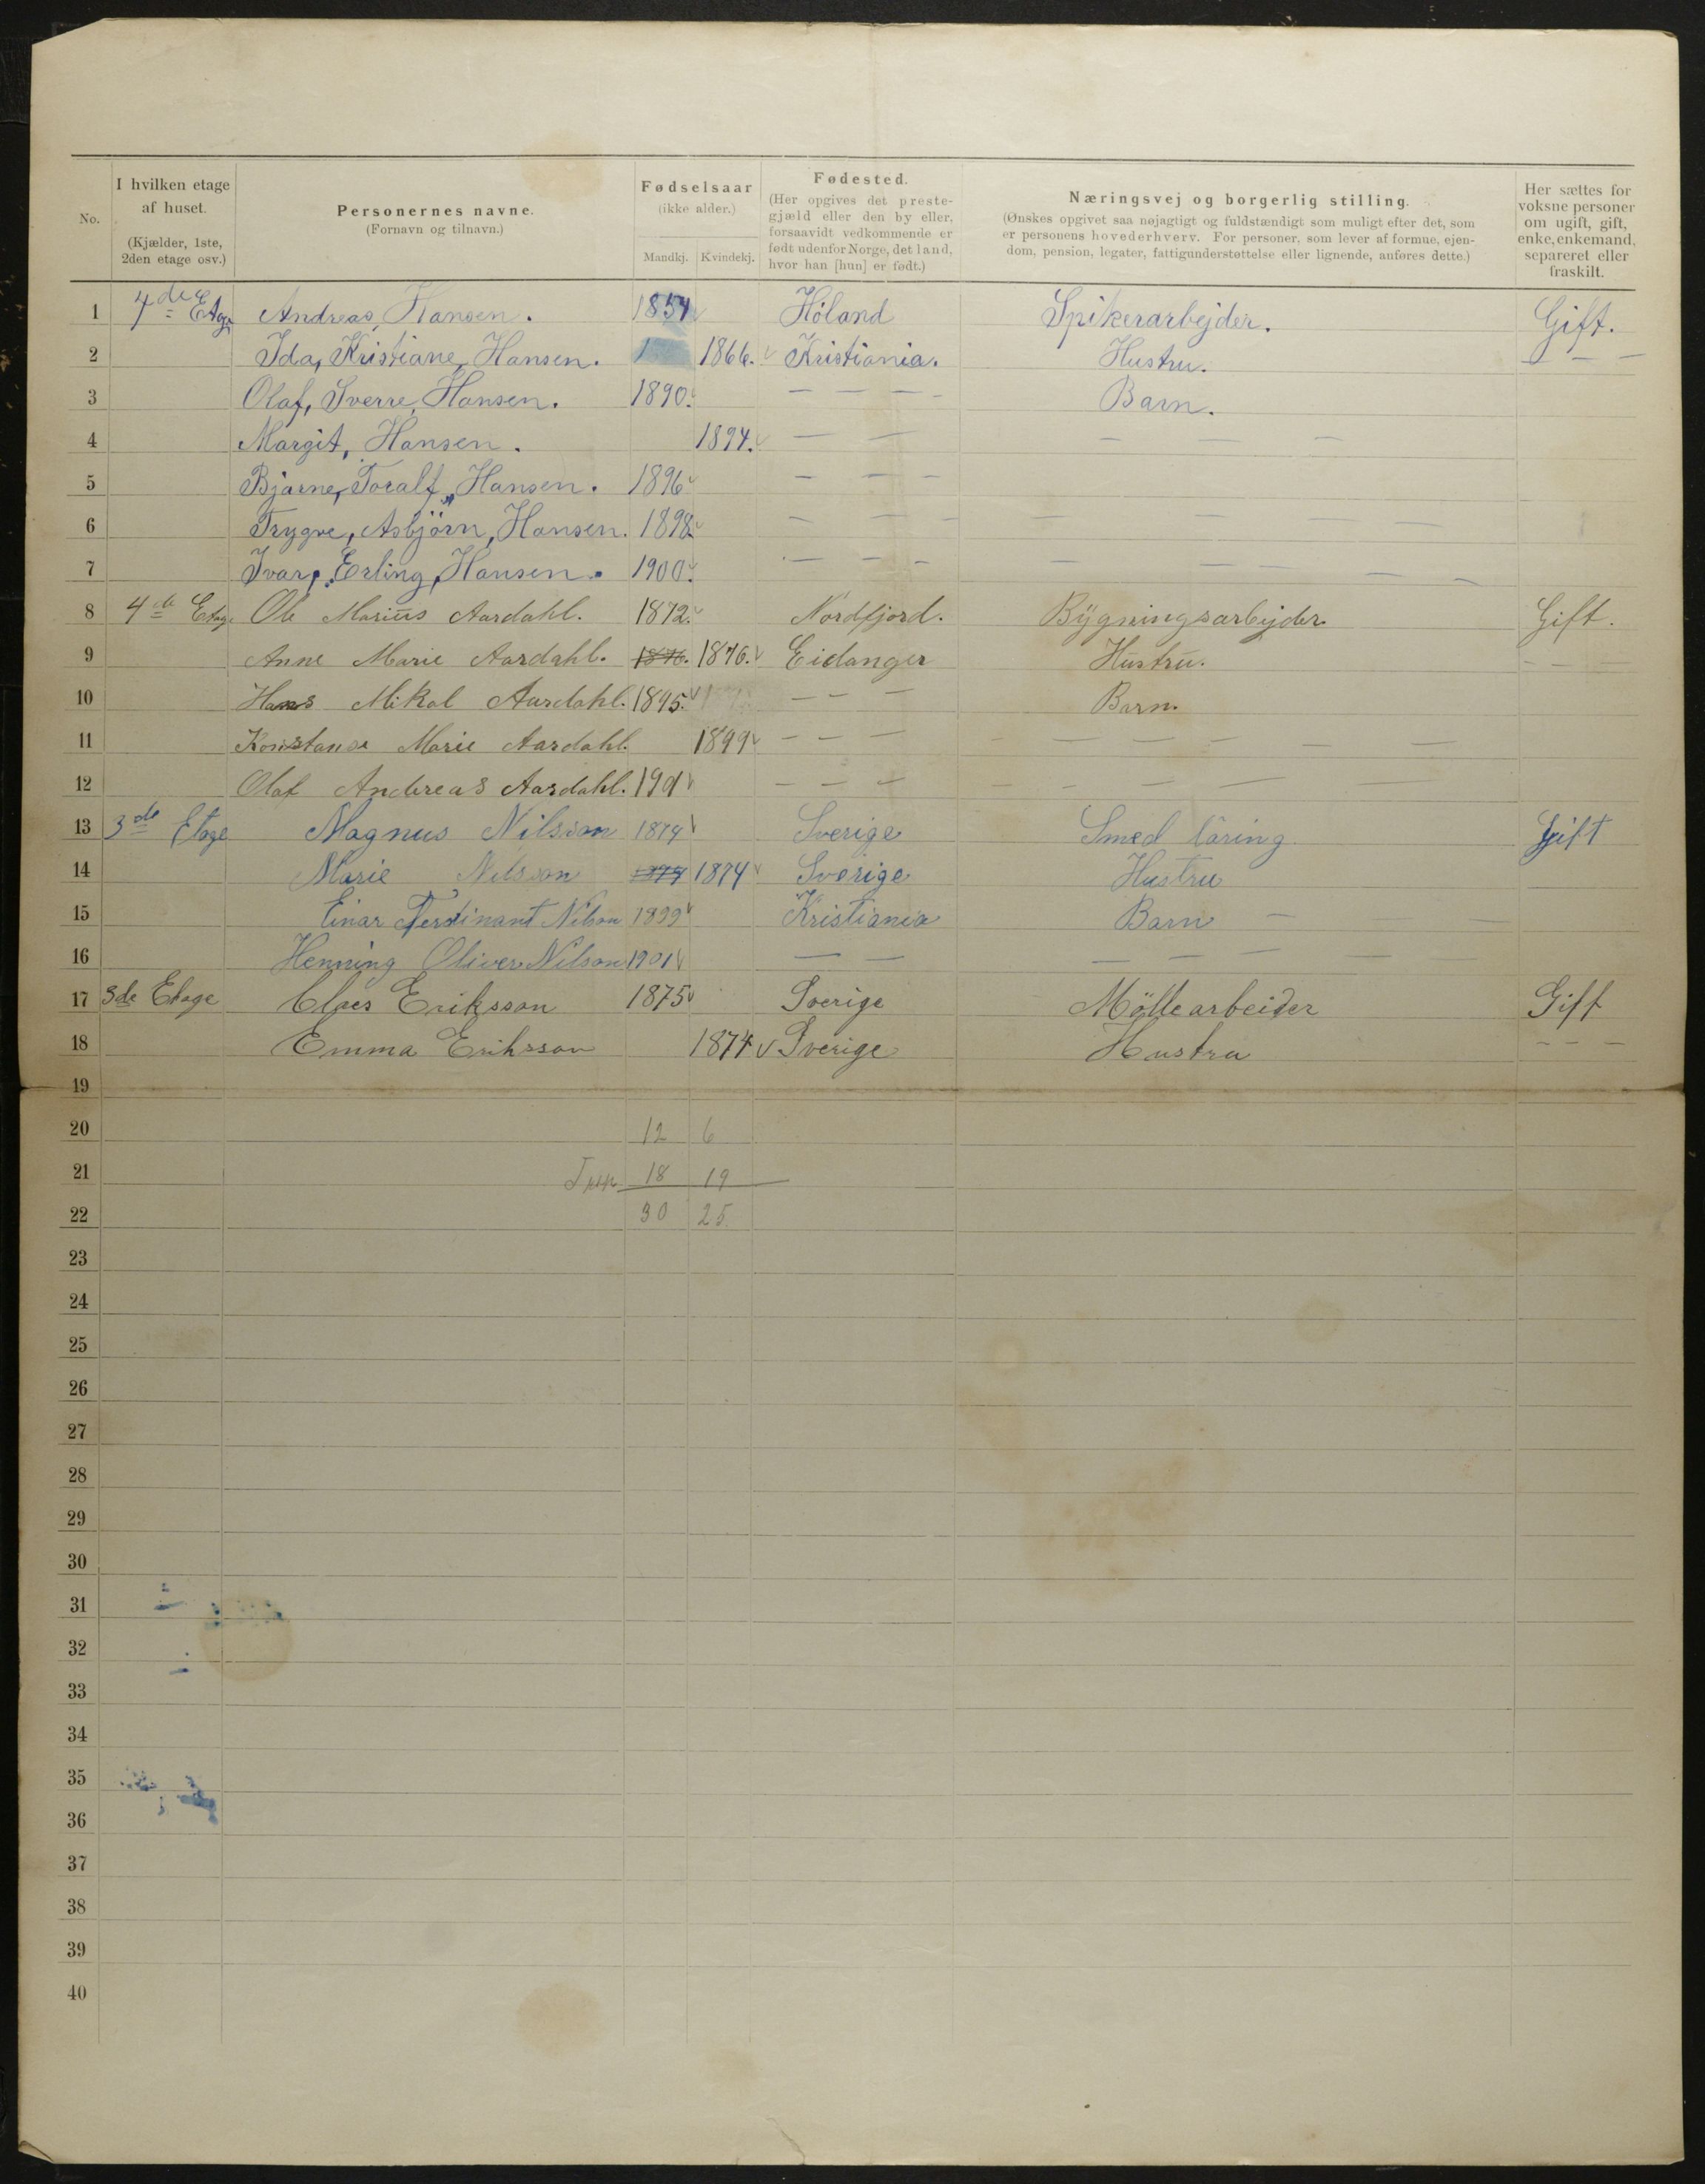 No.
I hvilken etage af huset.
(Kjælder, 1ste, 2den etage osv.)
Personernes navne.
(Fornavn og tilnavn.)
Fødselsaar
(ikke alder.)
Mandkj. Kvindekj.
Fødested.
(Her opgives det prestegjæld eller den by eller, forsaavidt vedkommende er født udenfor Norge, det land, hvor han [hun] er født.)
Næringsvej og borgerlig stilling.
(Ønskes opgivet saa nøjagtigt og fuldstændigt som muligt efter det, som er personens hovederhverv. For personer, som lever af formue, ejendom, pension, legater, fattigunderstøttelse eller lignende, anføres dette.)
Her sættes for voksne personer om ugift, gift, enke, enkemand, separeret eller fraskilt.
1 4de Etage Andreas, Hansen. 1854 Höland Spikerarbejder. Gift.
2 Ida, Kristiane, Hansen. 1 1866. Kristiania. Hustru. — — —
3 Olaf, Sverre, Hansen. 1890. — — — Barn.
4 Margit, Hansen. 1894. — — — — —
5 Bjarne, Toralf, Hansen. 1896 — — —
6 Trygve, Asbjörn, Hansen. 1898. — — — — — — — —
7 Ivar, Erling, Hansen. 1900. — — — — — — — —
8 4de Etage Ole Marius Aardahl. 1872. Nordfjord. Bygningsarbejder. Gift.
9 Anne Marie Aardahl. 1876. 1876. Eidanger Hustru. — — —
10 Hans Mikal Aardahl. 1895. — — — Barn.
11 Konstanse Marie Aardahl. 1899 — — — — — — — —
12 Olaf Andreas Aardahl. 1901 — — — — — — — —
13 3de Etage Magnus Nilsson 1874 Sverige Smed läring Gift
14 Marie Nilsson 1874 1874 Sverige Hustru
15 Einar Ferdinant Nilson 1899 Kristiania Barn — — —
16 Henning Oliver Nilson 1901 — — — — — — —
17 3de Etage Claes Eriksson 1875 Sverige Möllearbeider Gift
18 Emma Eriksson 1874 Sverige Hustra — — —
19
20 12 6
21 18 19
22 30 25
23
24
25
26
27
28
29
30
31
32
33
34
35
36
37
38
39
40